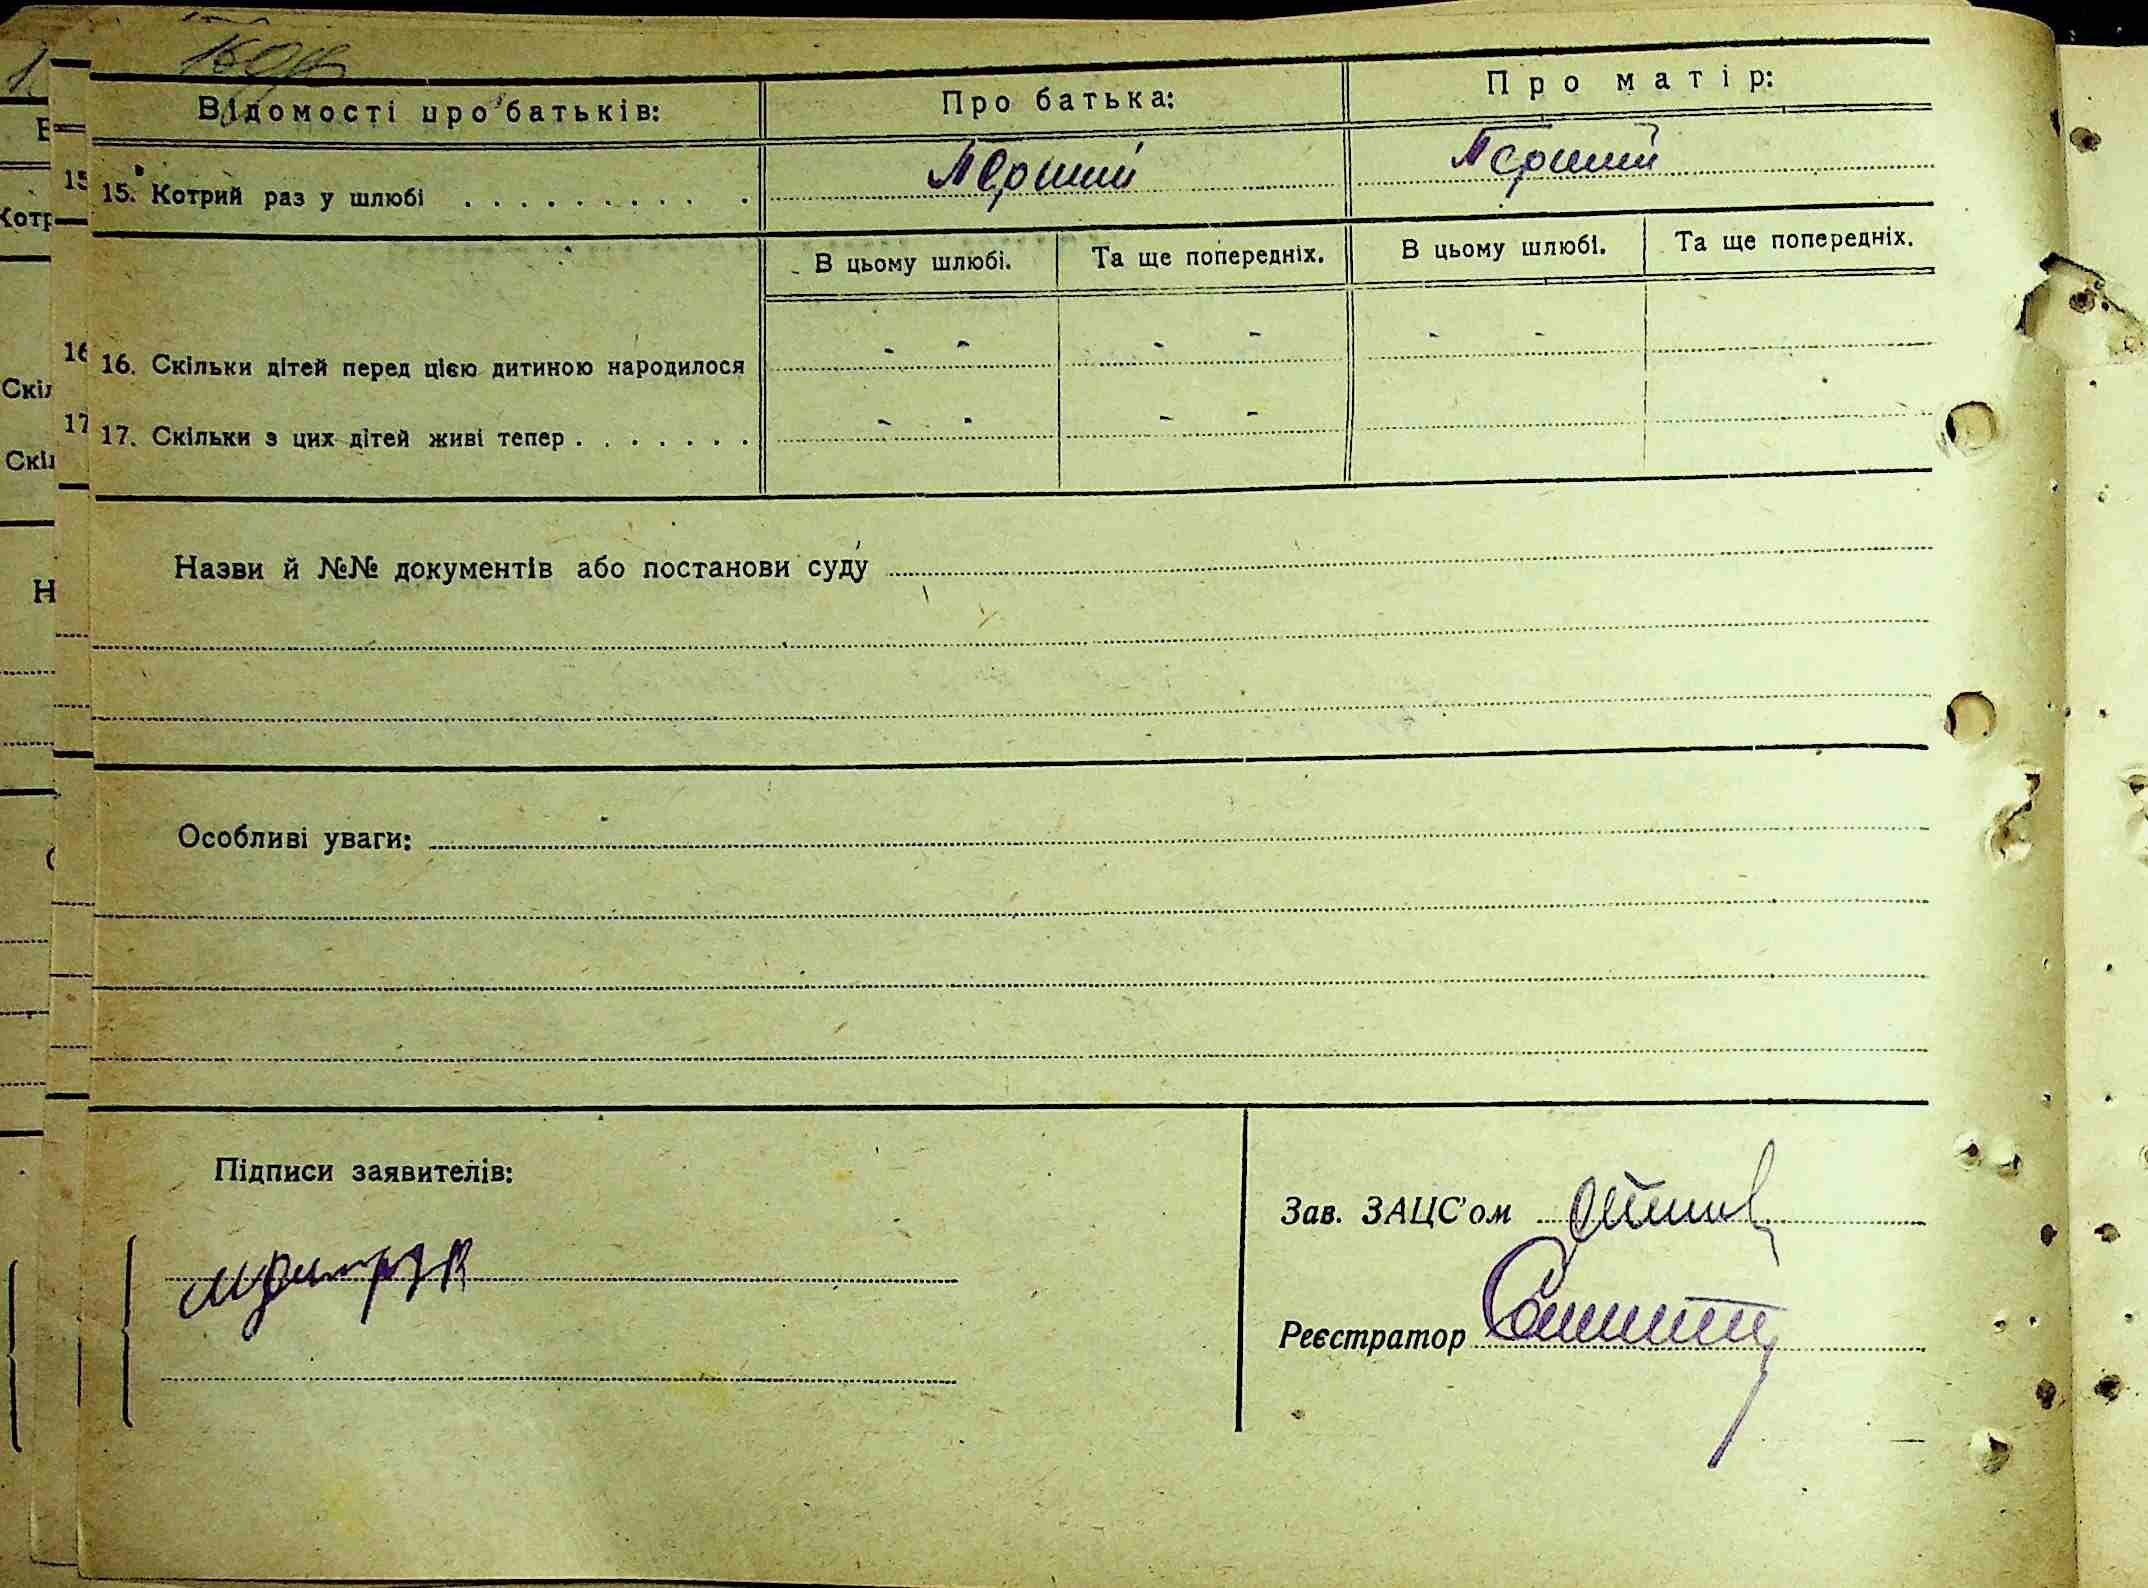 Відомості про батьків: Про батька: Про матір:
15. Котрий раз у шлюбі . . . . . . . . . . Перший Перший
В цьому шлюбі. Та ще попередніх. В цьому шлюбі. Та ще попередніх.
16. Скільки дітей перед цією дитиною народилося - - - - - -
17. Скільки з цих дітей живі тепер . . . . . . . - - - -
Назви й №№ документів або постанови суду
Особливі уваги:
Підписи заявителів:
Зав. ЗАЦС'ом
Реєстратор